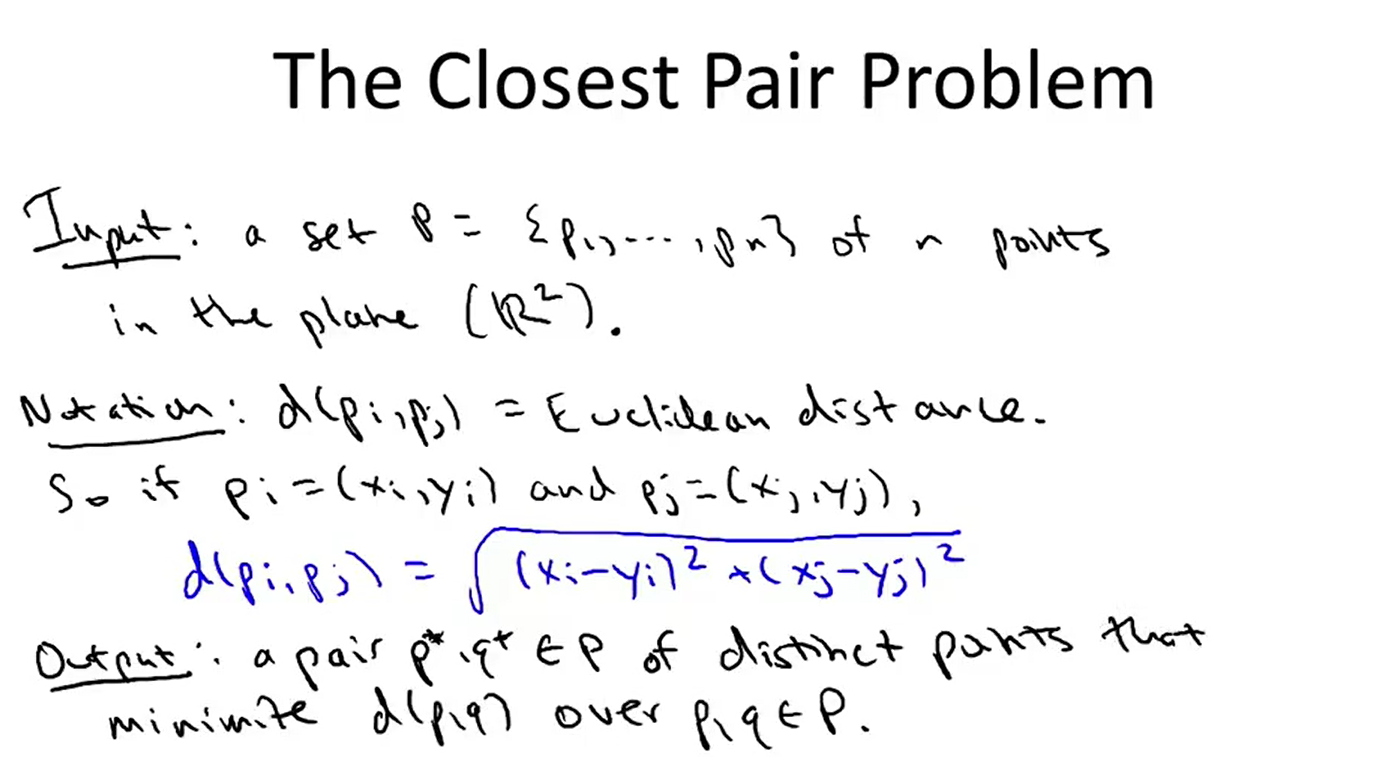 The Closest Pair Problem
Input: a set P = {p₁, ..., pₙ} of n points
in the plane (ℝ²).
Notation: d(pᵢ, pⱼ) = Euclidean distance.
So if pᵢ = (xᵢ, yᵢ) and pⱼ = (xⱼ, yⱼ),
d(pᵢ, pⱼ) = √((xᵢ-yᵢ)² + (xⱼ-yⱼ)²)
Output: a pair p*, q* ∈ P of distinct points that
minimize d(p,q) over p,q ∈ P.